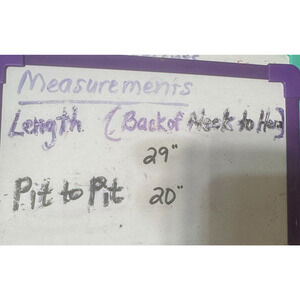 Measurements
Length (Back of Neck to Hem)
29"
Pit to Pit 20"